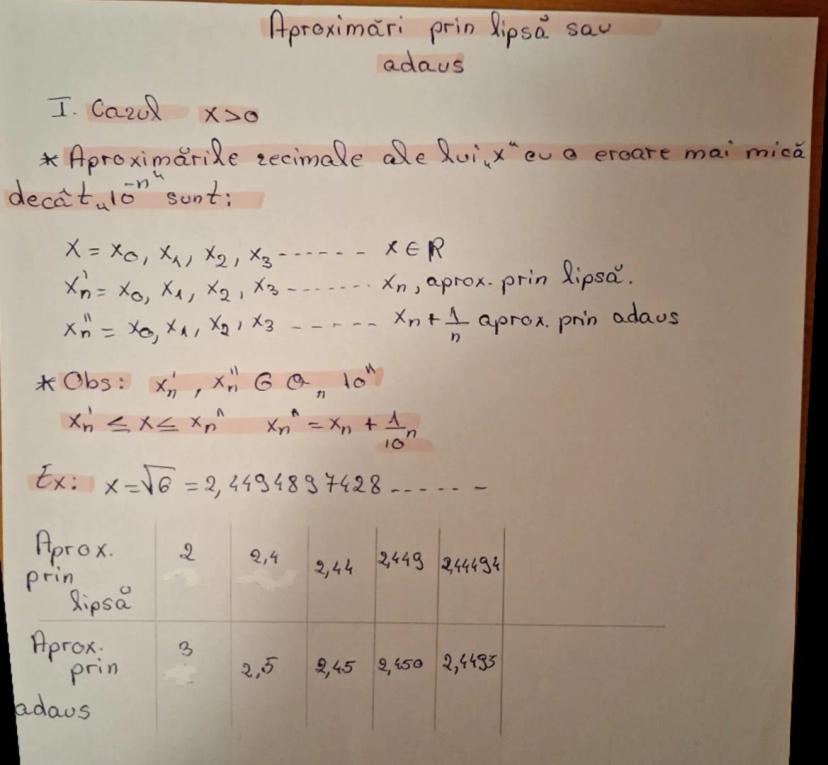 Aproximări prin lipsă sau
adaus
I. Cazul x>0
* Aproximările zecimale ale lui „x" cu o eroare mai mică
decât „10⁻ⁿ" sunt:
X = x₀, x₁, x₂, x₃ ------ x ∈ R
xₙ' = x₀, x₁, x₂, x₃ ------- xₙ, aprox. prin lipsă.
xₙ'' = x₀, x₁, x₂, x₃ ------ xₙ + 1/n aprox. prin adaus
* Obs: xₙ', xₙ'' ∈ Q „ 10ⁿ
xₙ' ≤ x ≤ xₙ'' xₙ'' = xₙ + 1/10ⁿ
Ex: x = √6 = 2,4494897428 ------
Aprox. prin lipsă 2 2,4 2,44 2,449 2,44494
Aprox. prin adaus 3 2,5 2,45 2,450 2,4495